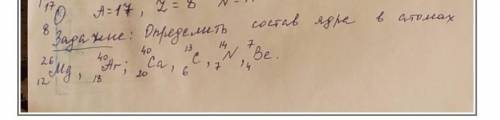 ¹⁷₈O A=17, Z=8 N=
Задание: Определить состав ядра в атомах
²⁶₁₂Mg, ⁴⁰₁₈Ar; ⁴⁰₂₀Ca, ¹³₆C, ¹⁴₇N, ⁷₄Be.